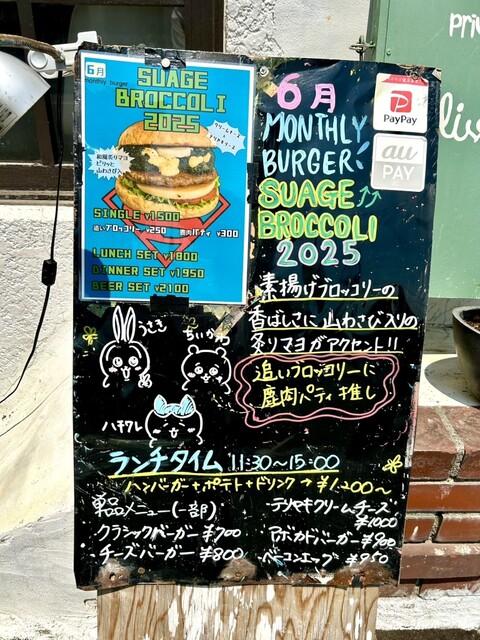 6月
monthly burger
SUAGE
BROCCOLI
2025
クリームチーズ
テリヤキソース
和風炙りマヨ
ピリッと
山わさび入
SINGLE ¥1500
追いブロッコリー ¥250 鹿肉パティ ¥300
LUNCH SET ¥1800
DINNER SET ¥1950
BEER SET ¥2100
6月
MONTHLY
BURGER
SUAGE
BROCCOLI
2025
素揚げブロッコリーの
香ばしさに山わさび入りの
炙りマヨがアクセント!!
追いブロッコリーに
鹿肉パティ推し
PayPay
au
PAY
うさぎ
ちいかわ
ハチワレ
ランチタイム 11:30~15:00
ハンバーガー+ポテト+ドリンク→¥1,200~
単品メニュー(一部)
クラシックバーガー ¥700
チーズバーガー ¥800
テリヤキクリームチーズ
¥1000
アボカドバーガー ¥900
ベーコンエッグ ¥950
priv
live